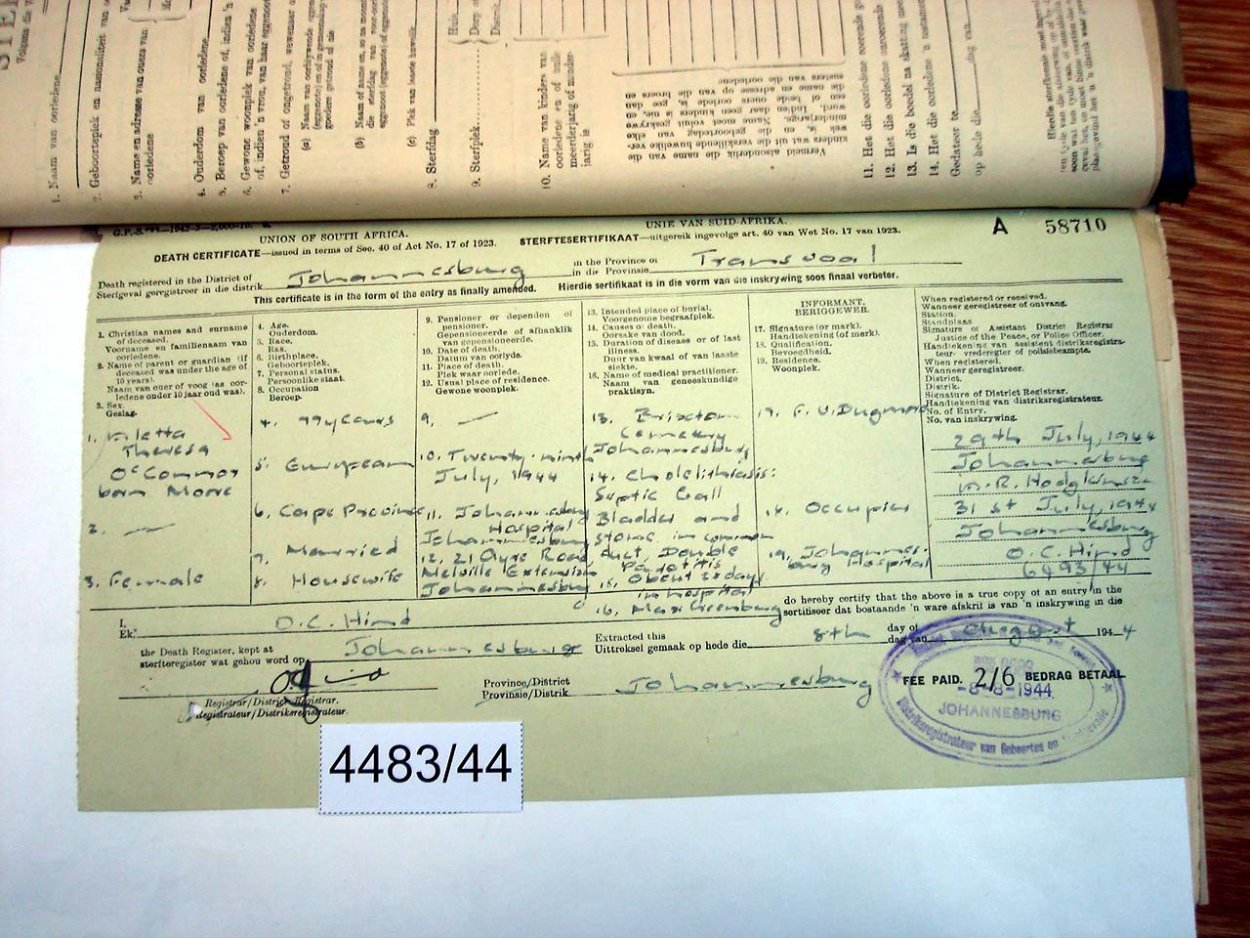 1. Naam van oorledene
2. Geboorteplek en nasionaliteit van
3. Name en adresse van ouers van
oorledene
4. Ouderdom van oorledene
5. Beroep van oorledene of, indien 'n
6. Gewone woonplek van oorledene
of, indien 'n vrou, van haar eggenoot
7. Getroud of ongetroud, wewenaar
(a) Naam van oorblywende
goedere getroud of nie
(b) Naam of name en
die sterfdag van
eggenoot (eggenote) of
(c) Plek van laaste huwelik
8. Sterfdag
9. Sterfplek
10. Name van kinders van
oorledene en of hulle
meerderjarig of minder-
jarig is
Vermeld afsonderlik die name van die
kinders uit die verskillende huwelike ver-
wek, en die geboortedag van elke
minderjarige. Name moet voluit geskrywe
word. Indien daar geen kinders is nie, en
een of beide ouers oorlede is, gee dan
die name en adresse op van die broers en
susters van die oorledene
11. Het die oorledene roerende
12. Het die oorledene onroerende
13. Is die boedel na skatting meer
14. Het die oorledene 'n testament
Gedateer te
op hede die dag van
UNION OF SOUTH AFRICA. UNIE VAN SUID-AFRIKA. A 58710
DEATH CERTIFICATE—issued in terms of Sec. 40 of Act No. 17 of 1923. STERFTESERTIFIKAAT—uitgereik ingevolge art. 40 van Wet No. 17 van 1923.
Death registered in the District of Johannesburg in the Province of Transvaal
Sterfgeval geregistreer in die distrik in die Provinsie
This certificate is in the form of the entry as finally amended. Hierdie sertifikaat is in die vorm van die inskrywing soos finaal verbeter.
1. Christian names and surname
of deceased.
Voorname en familienaam van
oorledene.
2. Name of parent or guardian (if
deceased was under the age of
10 years).
Naam van ouer of voog (as oor-
ledene onder 10 jaar oud was).
3. Sex.
Geslag.
4. Age.
Ouderdom.
5. Race.
Ras.
6. Birthplace.
Geboorteplek.
7. Personal status.
Persoonlike staat.
8. Occupation
Beroep.
9. Pensioner or dependen of
pensioner.
Gepensioneerde of afhanklik
van gepensioneerde.
10. Date of death.
Datum van oorlyde.
11. Place of death.
Plek waar oorlede.
12. Usual place of residence.
Gewone woonplek.
13. Intended place of burial.
Voorgenome begraafplek.
14. Causes of death.
Oorsake van dood.
15. Duration of disease or of last
illness.
Duur van kwaal of van laaste
siekte.
16. Name of medical practitioner.
Naam van geneeskundige
praktisyn.
INFORMANT.
BERIGGEWER.
17. Signature (or mark).
Handtekening (of merk).
18. Qualification.
Bevoegdheid.
19. Residence.
Woonplek.
When registered or received.
Wanneer geregistreer of ontvang.
Station.
Standplaas
Signature of Assistant District Registrar
Justice of the Peace, or Police Officer.
Handtekening van assistent distriksregistra-
teur vrederegter of polisiebeampte.
When registered.
Wanneer geregistreer.
District.
Distrik.
Signature of District Registrar.
Handtekening van distriksregistrateur.
No. of Entry.
No. van inskrywing.
1. Aletta
Theresa
O'Connor
born Moore
2. —
3. Female
4. 77 years
5. European
6. Cape Province
7. Married
8. Housewife
9. —
10. Twenty-ninth
July, 1944
11. Johannesburg
Hospital
Johannesburg
12. 21 Ayre Road
Melville Extension
Johannesburg
13. Brixton
Cemetery
Johannesburg
14. Cholelithiasis:
Septic Gall
Bladder and
stone in common
duct, Double
Parotitis
15. About 28 days
in hospital
16. Max Greenburg
17. F. V. Dugmore
18. Occupier
19. Johannes-
burg Hospital
29th July, 1944
Johannesburg
M.R. Hodgkinson
31st July, 1944
Johannesburg
O.C. Hind
6493/44
I, O.C. Hind do hereby certify that the above is a true copy of an entry in the
Ek, sertifiseer dat bostaande 'n ware afskrif is van 'n inskrywing in die
the Death Register, kept at Johannesburg Extracted this 8th day of August 1944
sterfteregister wat gehou word op Uittreksel gemaak op hede die dag van
Registrar/District Registrar.
Registrateur/Distriksregistrateur.
Province/District Johannesburg
Provinsie/Distrik.
FEE PAID. 2/6 BEDRAG BETAAL.
-8-8-1944
JOHANNESBURG
Distriksregistrateur van Geboortes en
4483/44